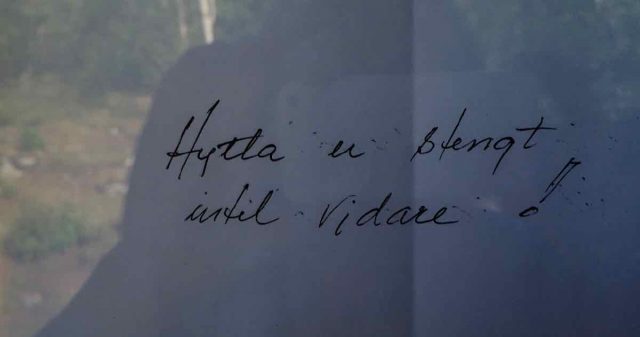 Hytta er stengt
inntil vidare !